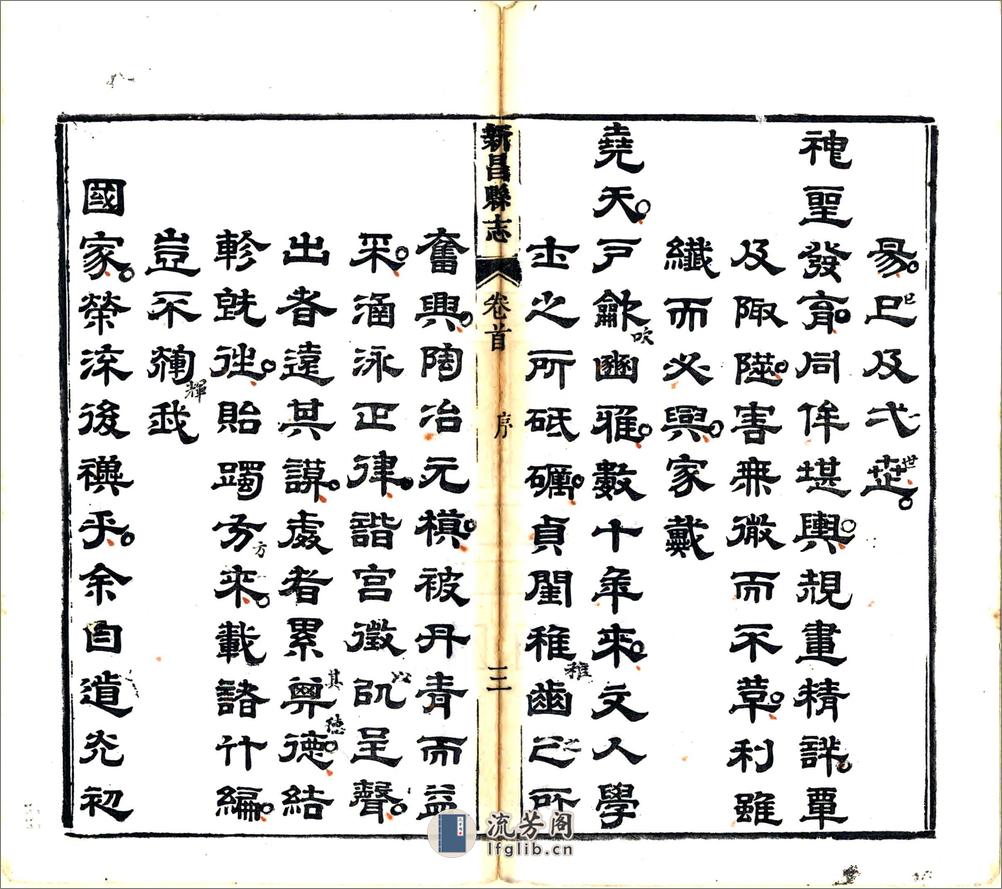 易巳及弌世
神聖發育同侔堪輿規畫精詳覃
及陬隘害無微而不革利雖
纖而必興家戴
堯天戶龡豳雅數十年來文人學
士之所砥礪貞閨稚齒之所
新昌縣志 卷首 序 三
奮興陶冶元模被丹青而益
采涵泳正律諧宮徵以呈聲
出者遠其謨處者累其德結
軫既往貽躅方來載諸竹編
豈不煇哉
國家榮流後禩乎余自道光初
巳
世
吹
稚
之
以
其
德
方
輝
流芳阁
lfglib.cn